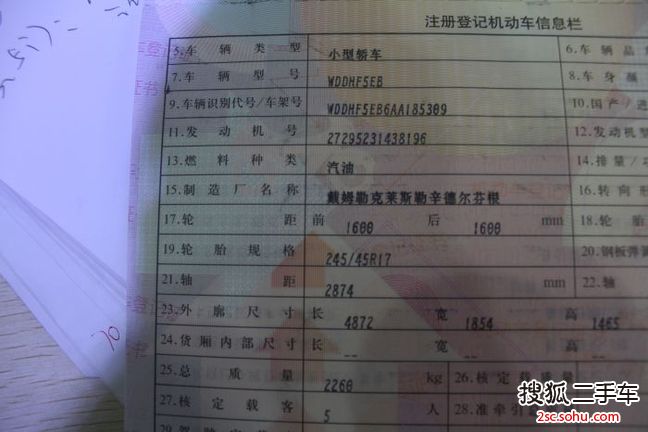 注册登记机动车信息栏
5.车辆类型 小型轿车 6.车辆品
7.车辆型号 WDDHF5EB 8.车身颜
9.车辆识别代号/车架号 WDDHF5EB6AA185309 10.国产/进
11.发动机号 27295231438196 12.发动机型
13.燃料种类 汽油 14.排量/功
15.制造厂名称 戴姆勒克莱斯勒辛德尔芬根 16.转向形
17.轮距 前 1600 后 1600 mm 18.轮胎
19.轮胎规格 245/45R17 20.钢板弹簧
21.轴距 2874 mm 22.轴
23.外廓尺寸 长 4872 宽 1854 高 1465
24.货厢内部尺寸 长 -- 宽 -- 高
25.总质量 2260 kg 26.核定载质量
27.核定载客 5 人 28.准牵引总
搜狐二手车
2sc.sohu.com